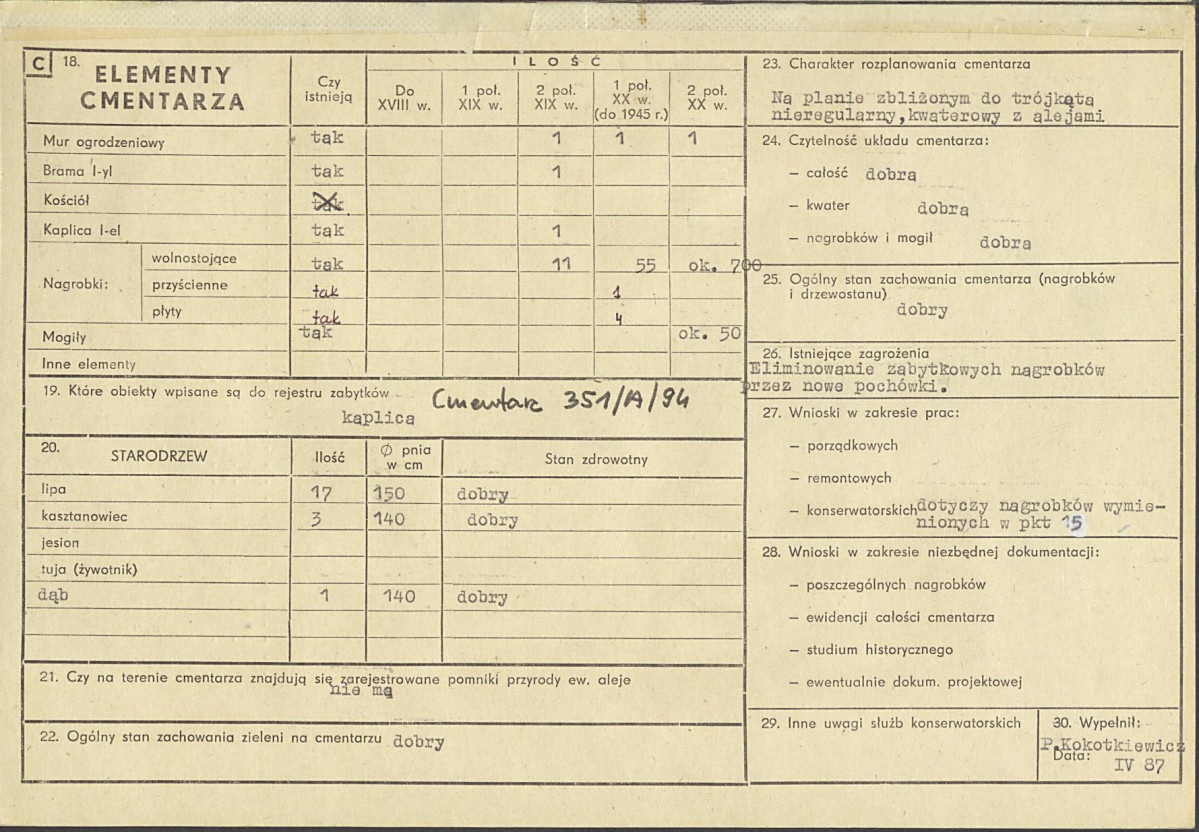 C 18. ELEMENTY CMENTARZA
Czy istnieją
I L O Ś Ć
Do XVIII w.
1 poł. XIX w.
2 poł. XIX w.
1 poł. XX w. (do 1945 r.)
2 poł. XX w.
Mur ogrodzeniowy tak 1 1 1
Brama I-yl tak 1
Kościół tak
Kaplica I-el tak 1
Nagrobki:
wolnostojące tak 11 55 ok. 700
przyścienne tak 1
płyty tak 4
Mogiły tak ok. 50
Inne elementy
19. Które obiekty wpisane są do rejestru zabytków Cmentarz 351/A/94
kaplica
20. STARODRZEW Ilość Ø pnia w cm Stan zdrowotny
lipa 17 150 dobry
kasztanowiec 3 140 dobry
jesion
tuja (żywotnik)
dąb 1 140 dobry
21. Czy na terenie cmentarza znajdują się zarejestrowane pomniki przyrody ew. aleje
nie ma
22. Ogólny stan zachowania zieleni na cmentarzu dobry
23. Charakter rozplanowania cmentarza
Na planie zbliżonym do trójkąta
nieregularny,kwaterowy z alejami
24. Czytelność układu cmentarza:
– całość dobra
– kwater dobra
– nagrobków i mogił dobra
25. Ogólny stan zachowania cmentarza (nagrobków
i drzewostanu)
dobry
26. Istniejące zagrożenia
Eliminowanie zabytkowych nagrobków
przez nowe pochówki.
27. Wnioski w zakresie prac:
– porządkowych
– remontowych
– konserwatorskich dotyczy nagrobków wymie-
nionych w pkt 15
28. Wnioski w zakresie niezbędnej dokumentacji:
– poszczególnych nagrobków
– ewidencji całości cmentarza
– studium historycznego
– ewentualnie dokum. projektowej
29. Inne uwagi służb konserwatorskich
30. Wypełnił:
P.Kokotkiewicz
Data:
IV 87